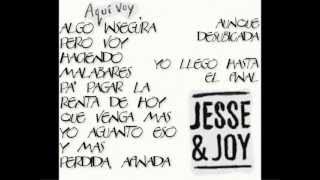 Aquí Voy
ALGO INSEGURA
PERO VOY
HACIENDO
MALABARES
PA' PAGAR LA
RENTA DE HOY
QUE VENGA MAS
YO AGUANTO ESO
Y MAS
PERDIDA AFINADA
AUNQUE
DESUBICADA
YO LLEGO HASTA
EL FINAL
JESSE
& JOY